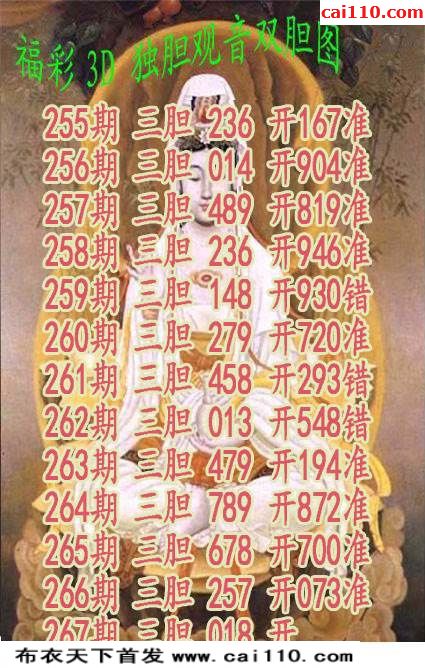 彩民乐园
cai110.com
福彩 3D 独胆观音双胆图
255期 三胆 236 开167准
256期 三胆 014 开904准
257期 三胆 489 开819准
258期 三胆 236 开946准
259期 三胆 148 开930错
260期 三胆 279 开720准
261期 三胆 458 开293错
262期 三胆 013 开548错
263期 三胆 479 开194准
264期 三胆 789 开872准
265期 三胆 678 开700准
266期 三胆 257 开073准
267期 三胆 018 开
布衣天下首发 www.cai110.com